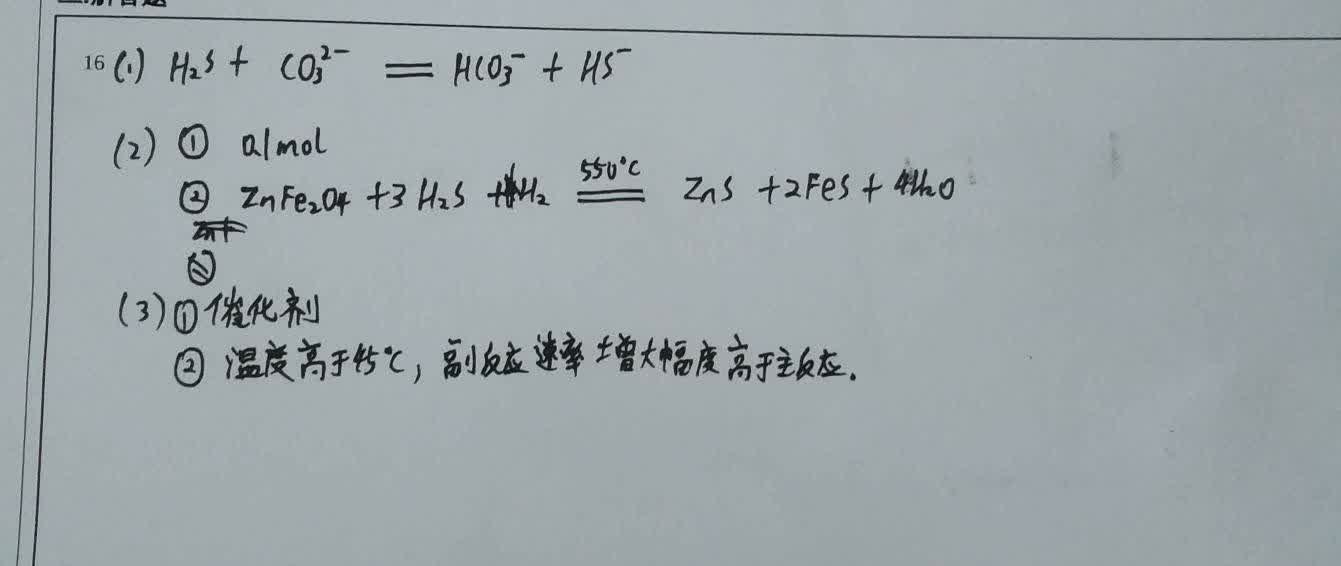 16 (1) H₂S + CO₃²⁻ == HCO₃⁻ + HS⁻
(2) ① 0.1mol
② ZnFe₂O₄ + 3H₂S + H₂ 550°C == ZnS + 2FeS + 4H₂O
(3) ① 催化剂
② 温度高于45°C, 副反应速率增大幅度高于主反应.